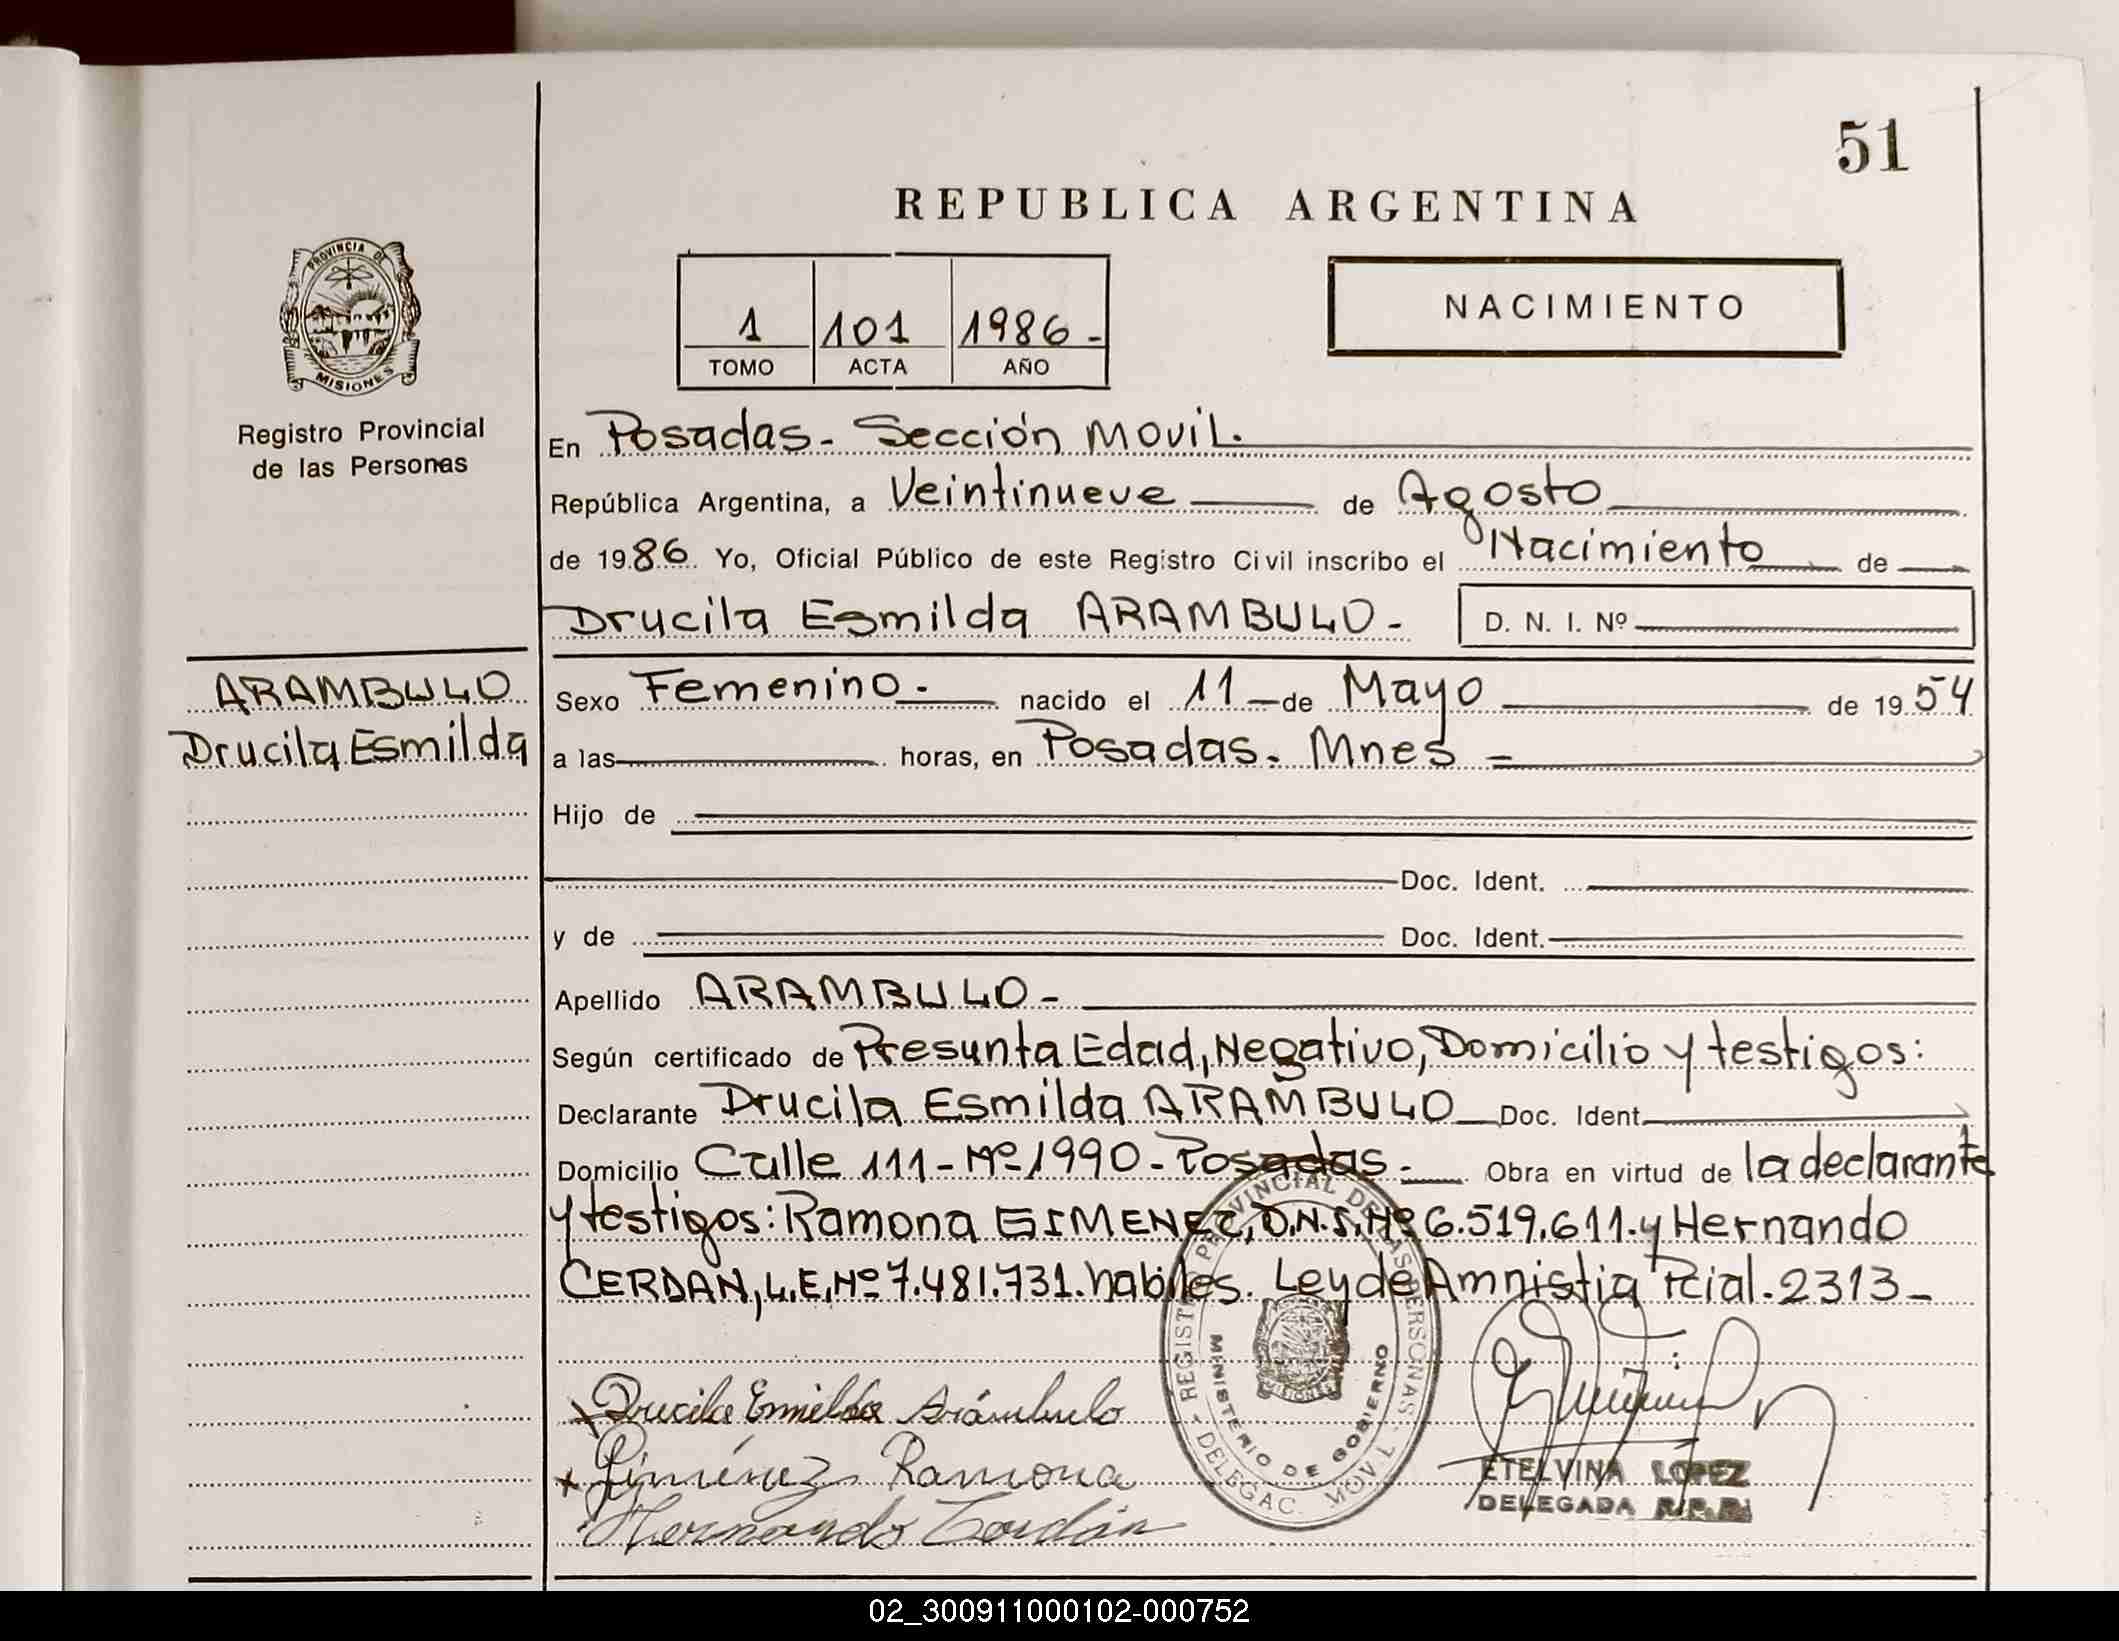 51
REPUBLICA ARGENTINA
PROVINCIA DE
MISIONES
Registro Provincial
de las Personas
1 101 1986-
TOMO ACTA AÑO
NACIMIENTO
En Posadas- Sección Movil.
República Argentina, a Veintinueve de Agosto
de 1986 Yo, Oficial Público de este Registro Civil inscribo el Nacimiento de
Drucila Esmilda ARAMBULO- D. N. I. Nº
ARAMBULO
Drucila Esmilda
Sexo Femenino- nacido el 11 de Mayo de 1954
a las horas, en Posadas. Mnes
Hijo de
Doc. Ident.
y de Doc. Ident.
Apellido ARAMBULO-
Según certificado de Presunta Edad, Negativo, Domicilio y testigos:
Declarante Drucila Esmilda ARAMBULO Doc. Ident.
Domicilio Calle 111- Nº 1990- Posadas- Obra en virtud de la declarante
y testigos: Ramona GIMENEZ, D.N.I. Nº 6.519.611. y Hernando
CERDAN, L.E. Nº 7.481.731. habiles. Ley de Amnistia Pcial. 2313-
REGISTRO PROVINCIAL DE LAS PERSONAS
MINISTERIO DE GOBIERNO
MISIONES
- DELEGAC. MOVIL -
x Drucila Esmilda Arámbulo
x Giménez Ramona
Hernando Cerdán
ETELVINA LOPEZ
DELEGADA R.P.P.
02_300911000102-000752